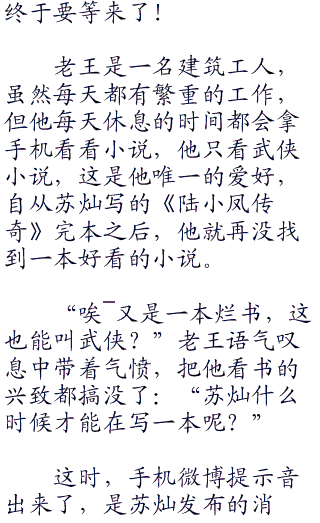 终于要等来了！
老王是一名建筑工人，
虽然每天都有繁重的工作，
但他每天休息的时间都会拿
手机看看小说，他只看武侠
小说，这是他唯一的爱好，
自从苏灿写的《陆小凤传
奇》完本之后，他就再没找
到一本好看的小说。
“唉¯又是一本烂书，这
也能叫武侠？”老王语气叹
息中带着气愤，把他看书的
兴致都搞没了：“苏灿什么
时候才能在写一本呢？”
这时，手机微博提示音
出来了，是苏灿发布的消